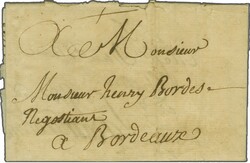 A Monsieur
Monsieur henry Bordes
Negotiant
a Bordeaux